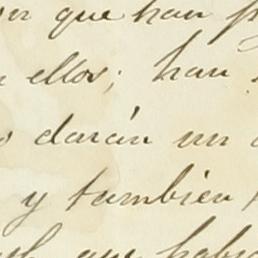 que han
ellos; han
darán un
y también
que habia